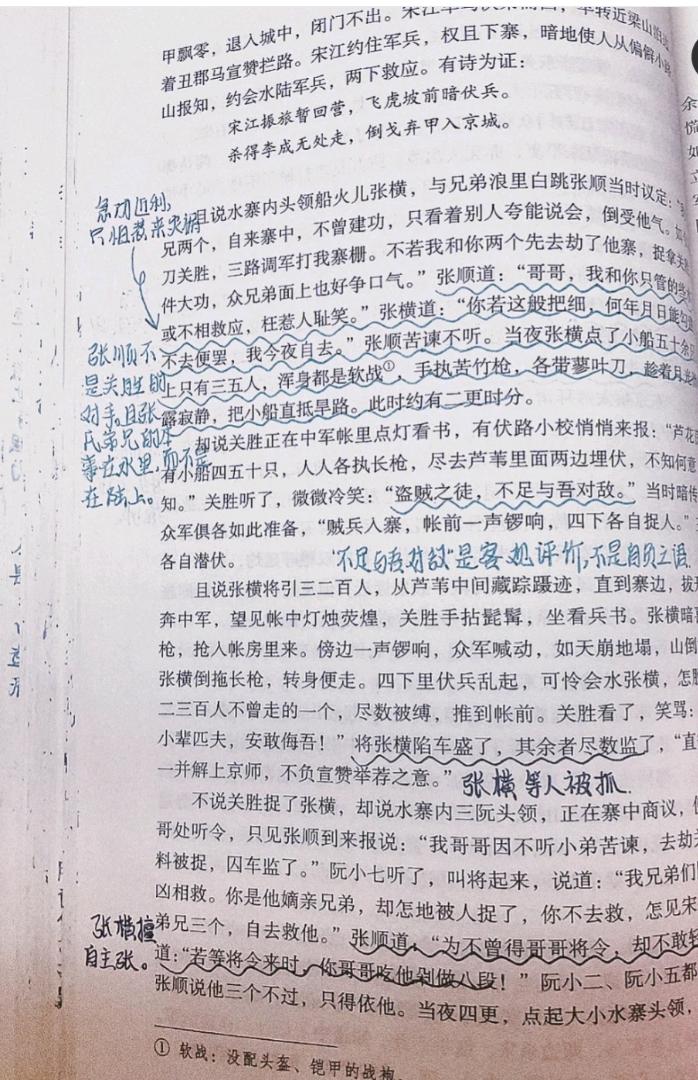 甲飘零，退入城中，闭门不出。宋江
着丑郡马宣赞拦路。宋江约住军兵，权且下寨，暗地使人从偏僻小
山报知，约会水陆军兵，两下救应。有诗为证：
宋江振旅暂回营，飞虎坡前暗伏兵。
杀得李成无处走，倒戈弃甲入京城。
急功近利，
只怕惹来灾祸
且说水寨内头领船火儿张横，与兄弟浪里白跳张顺当时议定：
兄两个，自来寨中，不曾建功，只看着别人夸能说会，倒受他气。
刀关胜，三路调军打我寨栅。不若我和你两个先去劫了他寨，捉拿关
件大功，众兄弟面上也好争口气。”张顺道：“哥哥，我和你只管的
或不相救应，枉惹人耻笑。”张横道：“你若这般把细，何年月日能
不去便罢，我今夜自去。”张顺苦谏不听。当夜张横点了小船五十余
上只有三五人，浑身都是软战①，手执苦竹枪，各带蓼叶刀，趁着月
露寂静，把小船直抵旱路。此时约有二更时分。
张顺不
是关胜的
对手。且张
氏弟兄的本
事在水里，而不是
在陆上。
却说关胜正在中军帐里点灯看书，有伏路小校悄悄来报：“芦花
有小船四五十只，人人各执长枪，尽去芦苇里面两边埋伏，不知何意
知。”关胜听了，微微冷笑：“盗贼之徒，不足与吾对敌。”当时暗传
众军俱各如此准备，“贼兵入寨，帐前一声锣响，四下各自捉人。”
各自潜伏。
“不足与吾对敌”是客观评价，不是自负之语
且说张横将引三二百人，从芦苇中间藏踪蹑迹，直到寨边，拔
奔中军，望见帐中灯烛荧煌，关胜手拈髭髯，坐看兵书。张横暗
枪，抢入帐房里来。傍边一声锣响，众军喊动，如天崩地塌，山倒
张横倒拖长枪，转身便走。四下里伏兵乱起，可怜会水张横，怎
二三百人不曾走的一个，尽数被缚，推到帐前。关胜看了，笑骂：
小辈匹夫，安敢侮吾！”将张横陷车盛了，其余者尽数监了，“直
一并解上京师，不负宣赞举荐之意。”
张横等人被抓.
不说关胜捉了张横，却说水寨内三阮头领，正在寨中商议，
哥处听令，只见张顺到来报说：“我哥哥因不听小弟苦谏，去劫
料被捉，囚车监了。”阮小七听了，叫将起来，说道：“我兄弟们
凶相救。你是他嫡亲兄弟，却怎地被人捉了，你不去救，怎见宋
弟兄三个，自去救他。”张顺道：“为不曾得哥哥将令，却不敢轻
道：“若等将令来时，你哥哥吃他剁做八段！”阮小二、阮小五都
张顺说他三个不过，只得依他。当夜四更，点起大小水寨头领，
张横擅
自主张。
① 软战：没配头盔、铠甲的战袍。